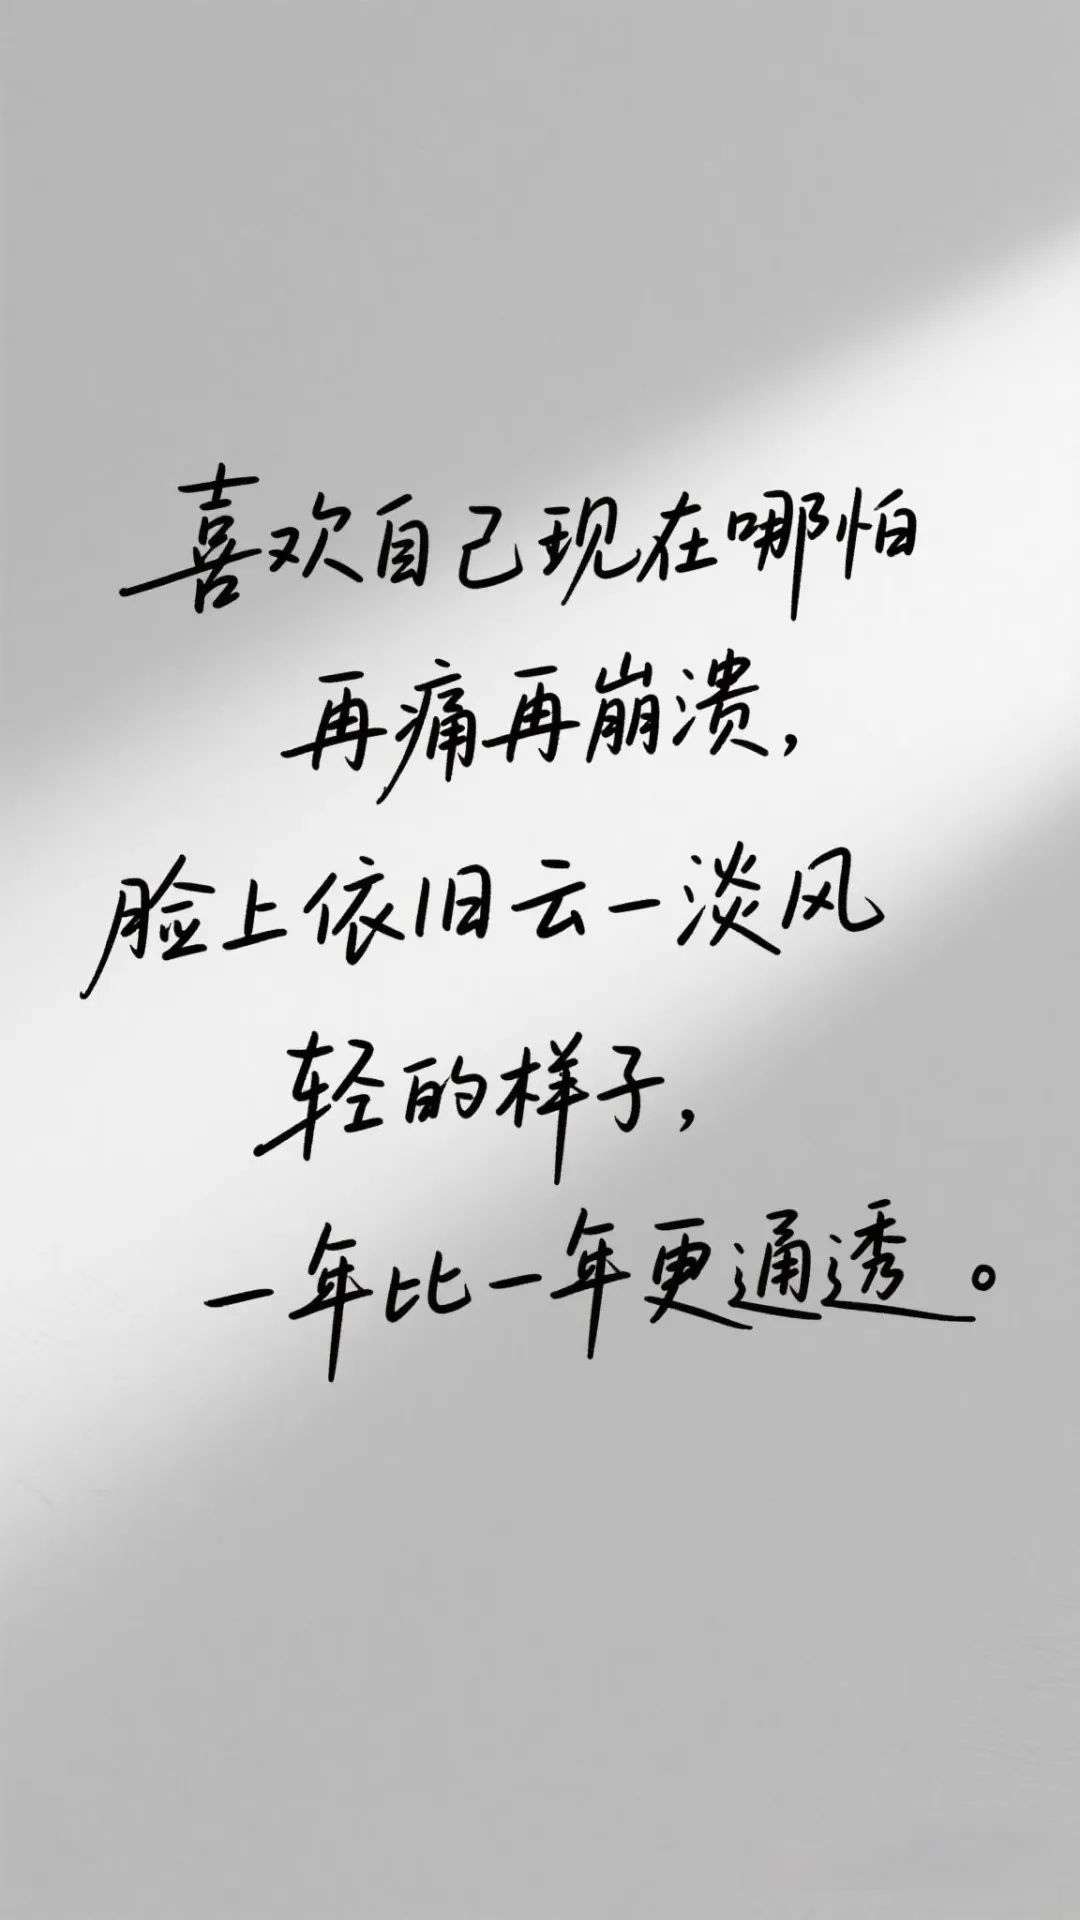 喜欢自己现在哪怕
再痛再崩溃，
脸上依旧云一淡风
轻的样子，
一年比一年更通透。